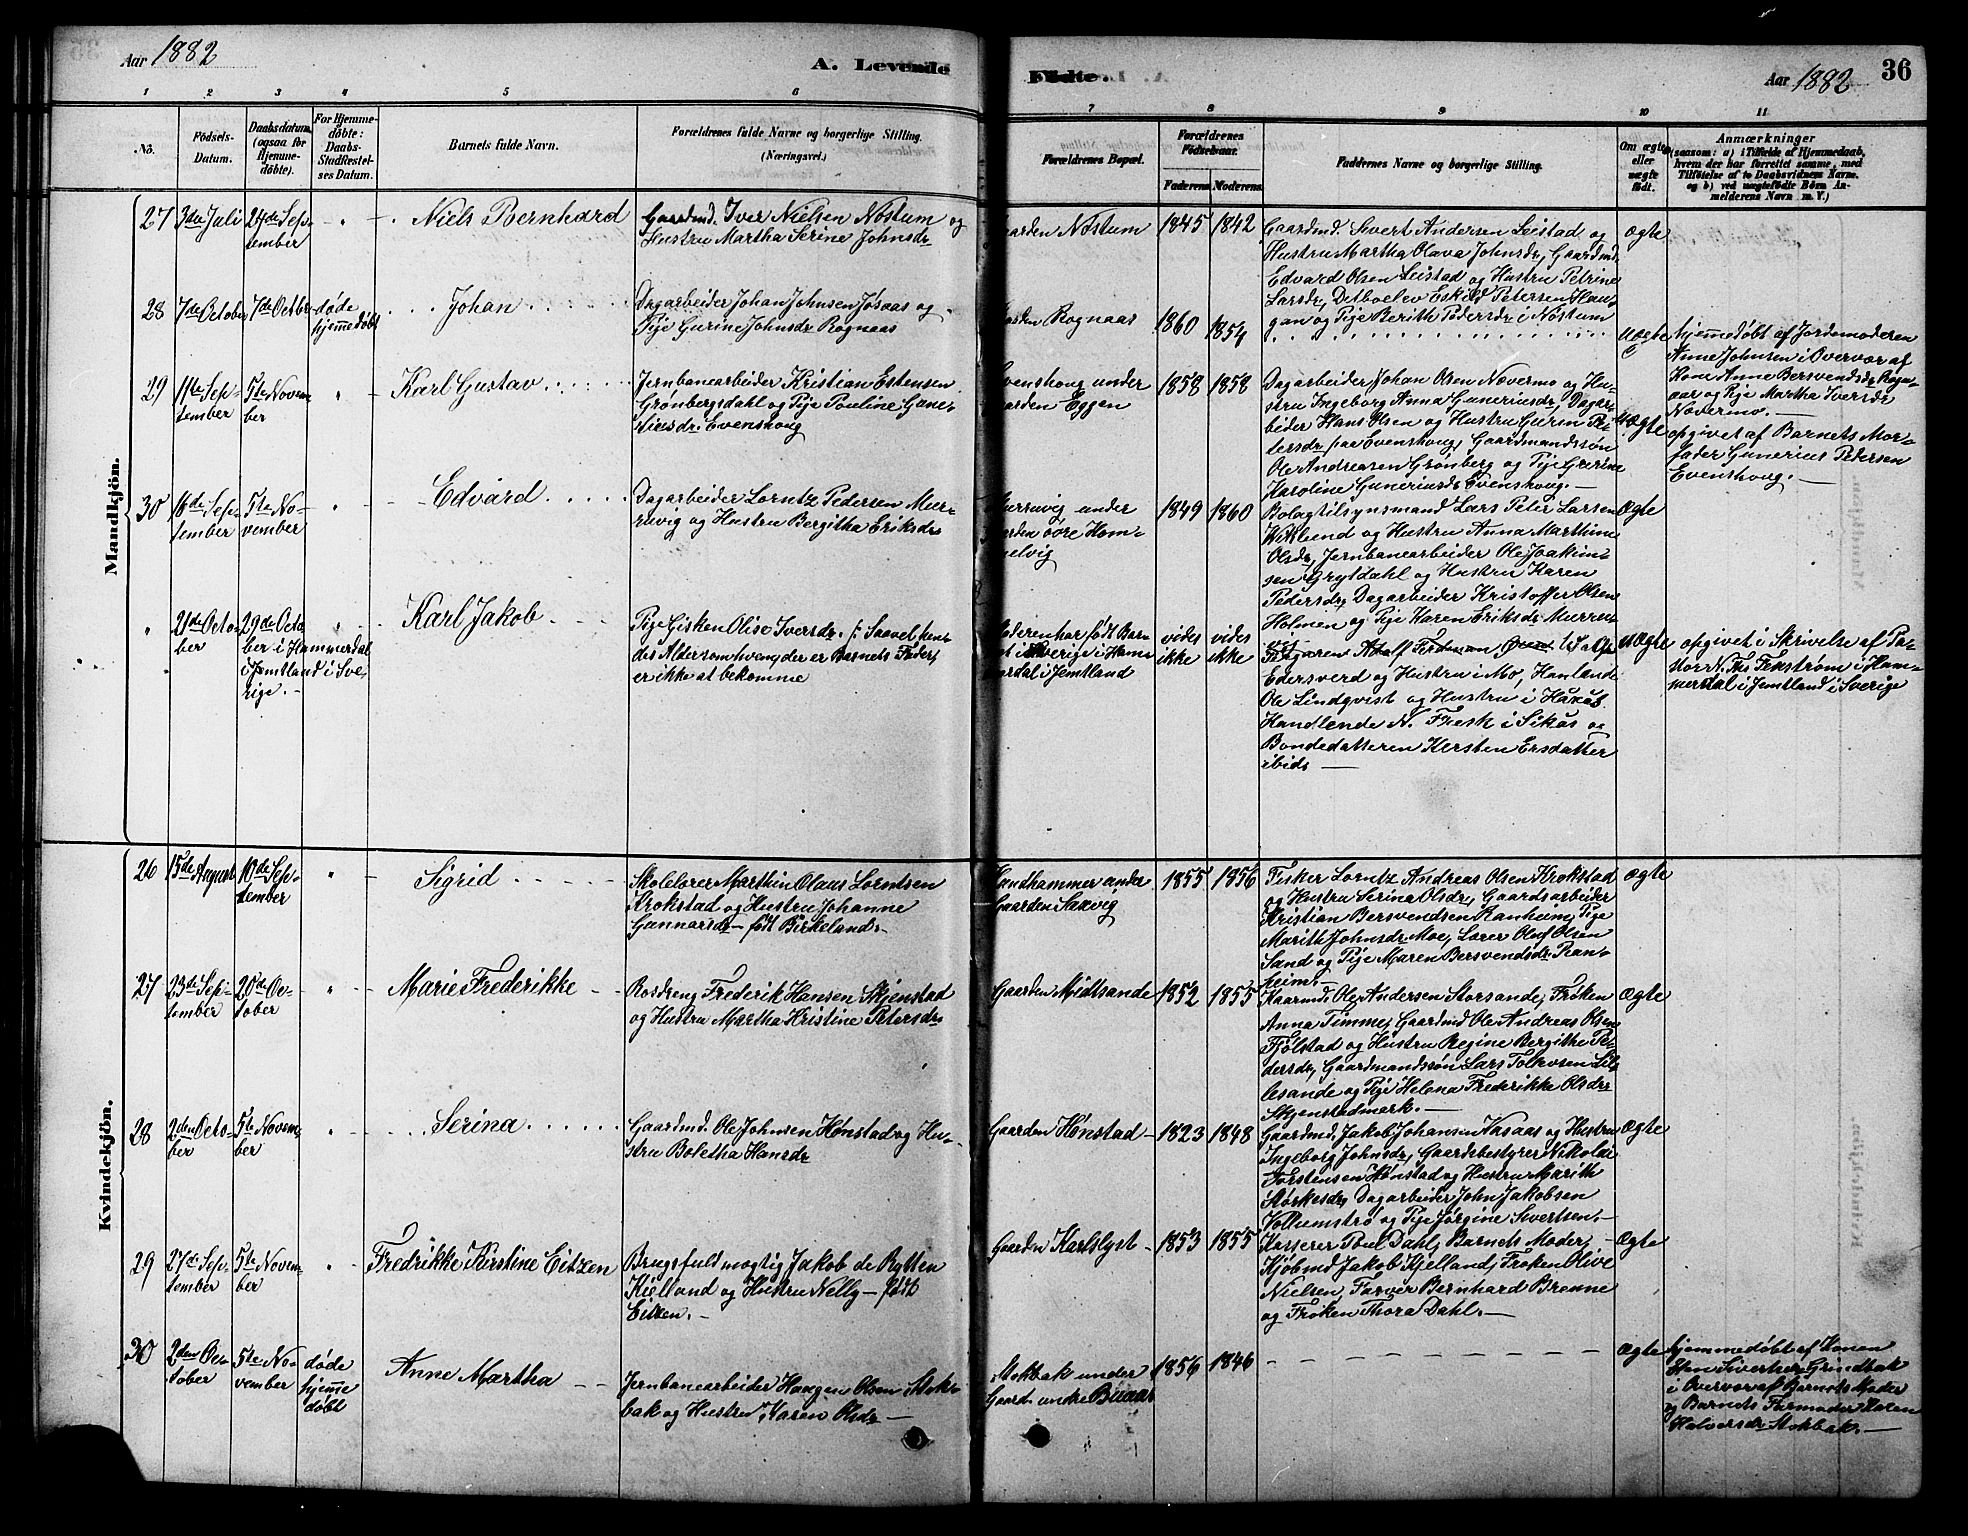 Aar 1882
A. Levende Födte.
Aar 1882
36
1 2 3 4 5 6 7 8 9 10 11
No.
Födsels-
Datum.
Daabsdatum
(ogsaa for
Hjemme-
döbte).
For Hjemme-
döbte:
Daabs-
Stadfestel-
ses Datum.
Barnets fulde Navn.
Forældrenes fulde Navne og borgerlige Stilling.
(Næringsvei.)
Forældrenes Bopæl.
Forældrenes
Födselsaar.
Faderens Moderens
Faddernes Navne og borgerlige Stilling.
Om ægte
eller
uægte
födt.
Anmærkninger
(saasom: a) i Tilfælde af Hjemmedaab,
hvem der har forrettet samme, med
Tilföielse af to Daabsvidners Navne,
og b) ved uægtefödte Börn An-
melderens Navn m. V.)
Mandkjön.
27
3die Juli
24de Sep-
tember
Niels Bernhard
Gaardmd. Iver Nielsen Nøstum og
Hustru Martha Serine Johnsdr
Gaarden Nøstum
1845 1842
Gaardmd. Sivert Andersen Leistad og
Hustru Martha Olava Johnsdr, Gaardmd.
Edvard Olsen Leistad og Hustru Petrine
Larsdr, Eskild Petersen Hau-
gan og Pige Berith Pedersdr i Nøstum
ægte
28
7de October
7de Octbr
døde
hjemmedøbt
Johan
Dagarbeider Johan Johnsen Jøsaas og
Pige Gurine Johnsdr Rognaas
Gaarden Rognaas
1860 1854
uægte
hjemmedøbt af Jordemoderen
Anne Johnsen i Overvær af
Kone Anne Bersvendsdr
og Pige Martha Iversdr
Nævermo.
29
11te Sep-
tember
5te Novem-
ber
Karl Gustav
Jernbanearbeider Kristian Estensen
Grønbergsdahl og Pige Pauline Gune-
riusdr. Evenshoug
Evenshoug under
Gaarden Eggen
1858 1858
Dagarbeider Johan Olsen Nævermo og Hu-
stru Ingeborg Anna Guneriusdr, Dagar-
beider Hans Olsen og Hustru Guren Pe-
tersdr paa Evenshoug, Gaardmandssøn
Ole Andreasen Grønberg og Pige Grerine
Karoline Guneriusdr Evenshoug.
uægte
opgivet af Barnets Mor-
fader Gunerius Petersen
Evenshoug.
30
16de Sep-
tember
5te No-
vember
Edvard
Dagarbeider Lorntz Pedersen Mur-
ruvig og Hustru Bergitha Eriksdr
Murruvig under
Gaarden øvre Hom-
melvig
1849 1860
Bolagtilsynsmand Lars Peter Larsen
Wiklund og Hustru Anna Marthine
Olsdr, Jernbanearbeider Ole Joakim-
sen Grytdahl og Hustru Karen
Pedersdr, Dagarbeider Kristoffer Olsen
Holmen og Pige Karen Eriksdr Murru-
vig
Ægte
21de Octo-
ber
29de Octo-
ber i Hammerdal
i Jemtland i Sve-
rige.
Karl Jakob
Pige Gisken Olise Iversdr. Saavel hen-
des Alder som hvem der er Barnets Fader,
er ikke at bekomme
Moderen har født Barn-
et i Sverige i Ham-
merdal i Jemtland
vides
ikke
vides
ikke
Edersverd og Hustru i Mo, Hanlande
Ole Lindqvist og Hustru i Håxås
Handlende N. Fresk i Sikås og
Bondedatteren Kersten Ersdatter
ibids
uægte
opgivet i Skrivelse af Pa-
stor N. Ths Ekstrøm i Ham-
merdal i Jemtland i Sverige
Kvindekjön.
26
15de August
10de Sep-
tember
Sigrid
Skolelærer Marthin Olaus Lorntsen
Krokstad og Hustru Johanne
Gunnarsdr – født Birkeland.
Hundhammer under
Gaarden Saxvig
1855 1856
Fisker Lorntz Andreas Olsen Krokstad
og Hustru Serina Olsdr, Gaardsarbeider
Kristian Bersvendsen Ranheim, Pige
Marith Johnsdr Moe, Lærer Oluf Olsen
Sand og Pige Maren Bersvendsdr Ran-
heim.
Ægte
27
23de Sep-
tember
20de Oc-
tober
Marie Frederikke
Rosdreng Frederik Hansen Skjenstad
og Hustru Martha Kristine Petersdr
Gaarden Midtsande
1852 1855
Kaarmd. Ole Andersen Storsande, Frøken
Anna Timme, Gaardmd Ole Andreas Olsen
Fjølstad og Hustru Regine Bergithe Pe-
dersdr, Gaardmandssøn Lars Tolkvsen Lil-
lesande og Pige Helena Frederikke Olsdr
Skjenstadmark.
Ægte
28
2den Octo-
ber
5te Novem-
ber
Serina
Gaardmd. Ole Johnsen Hønstad og Hu-
stru Boletha Hansdr
Gaarden Hønstad
1823 1848
Gaardmd. Jakob Johansen Aasaas og Hustru
Ingeborg Johnsdr, Gaardsbestyrer Nikolai
Torstensen Hønstad og Hustru Marith
Størkesdr, Dagarbeider John Jakobsen
Vollumstrø og Pige Jørgine Sivertsen.
Ægte
29
27de Sep-
tember
5te Novem-
ber
Fredrikke Kirstine Eitzen
Brugsfuldmægtig Jakob de Rytten
Kielland og Hustru Nelly – født
Eitzen.
Gaarden Karlslyst
1853 1855
Kasserer Poul Dahl, Barnets Moder,
Kjøbmd Jakob Kjelland, Frøken Olive
Nielsen, Farver Bernhard Brenne
og Frøken Thora Dahl.
Ægte
30
2den Oc-
tober
5te No-
vember
døde
hjemme
døbt
Anne Martha
Jernbanearbeider Haagen Olsen Stok-
bak og Hustru Karen Olsdr
Stokbak under
Gaard. undre Buaas
1856 1846
Ægte
hjemmedøbt af Konen
Sivertsen Grindbak
i Overvær af Barnets Moder
og Barnets Farmoder Karen
Halversdr Stokbak.